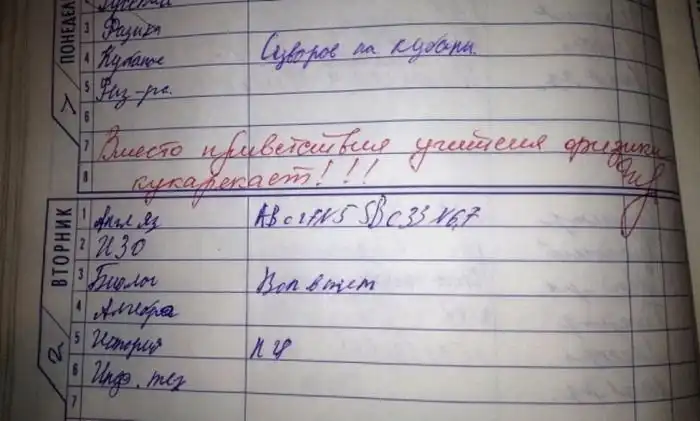 ПОНЕДЕЛ
3 Физика
4 Кубанов Суворов на кубани.
5 Физ-ра.
6
7 Вместо приветствия учителя физики
8 кукарекает!!!
ВТОРНИК
1 Англ яз АВ с 27 №5 SB с 33 №6,7
2 ИЗО
3 Биолог Воп в тет
4 Алгебра
5 История п 4
6 Инф. тех
7
2